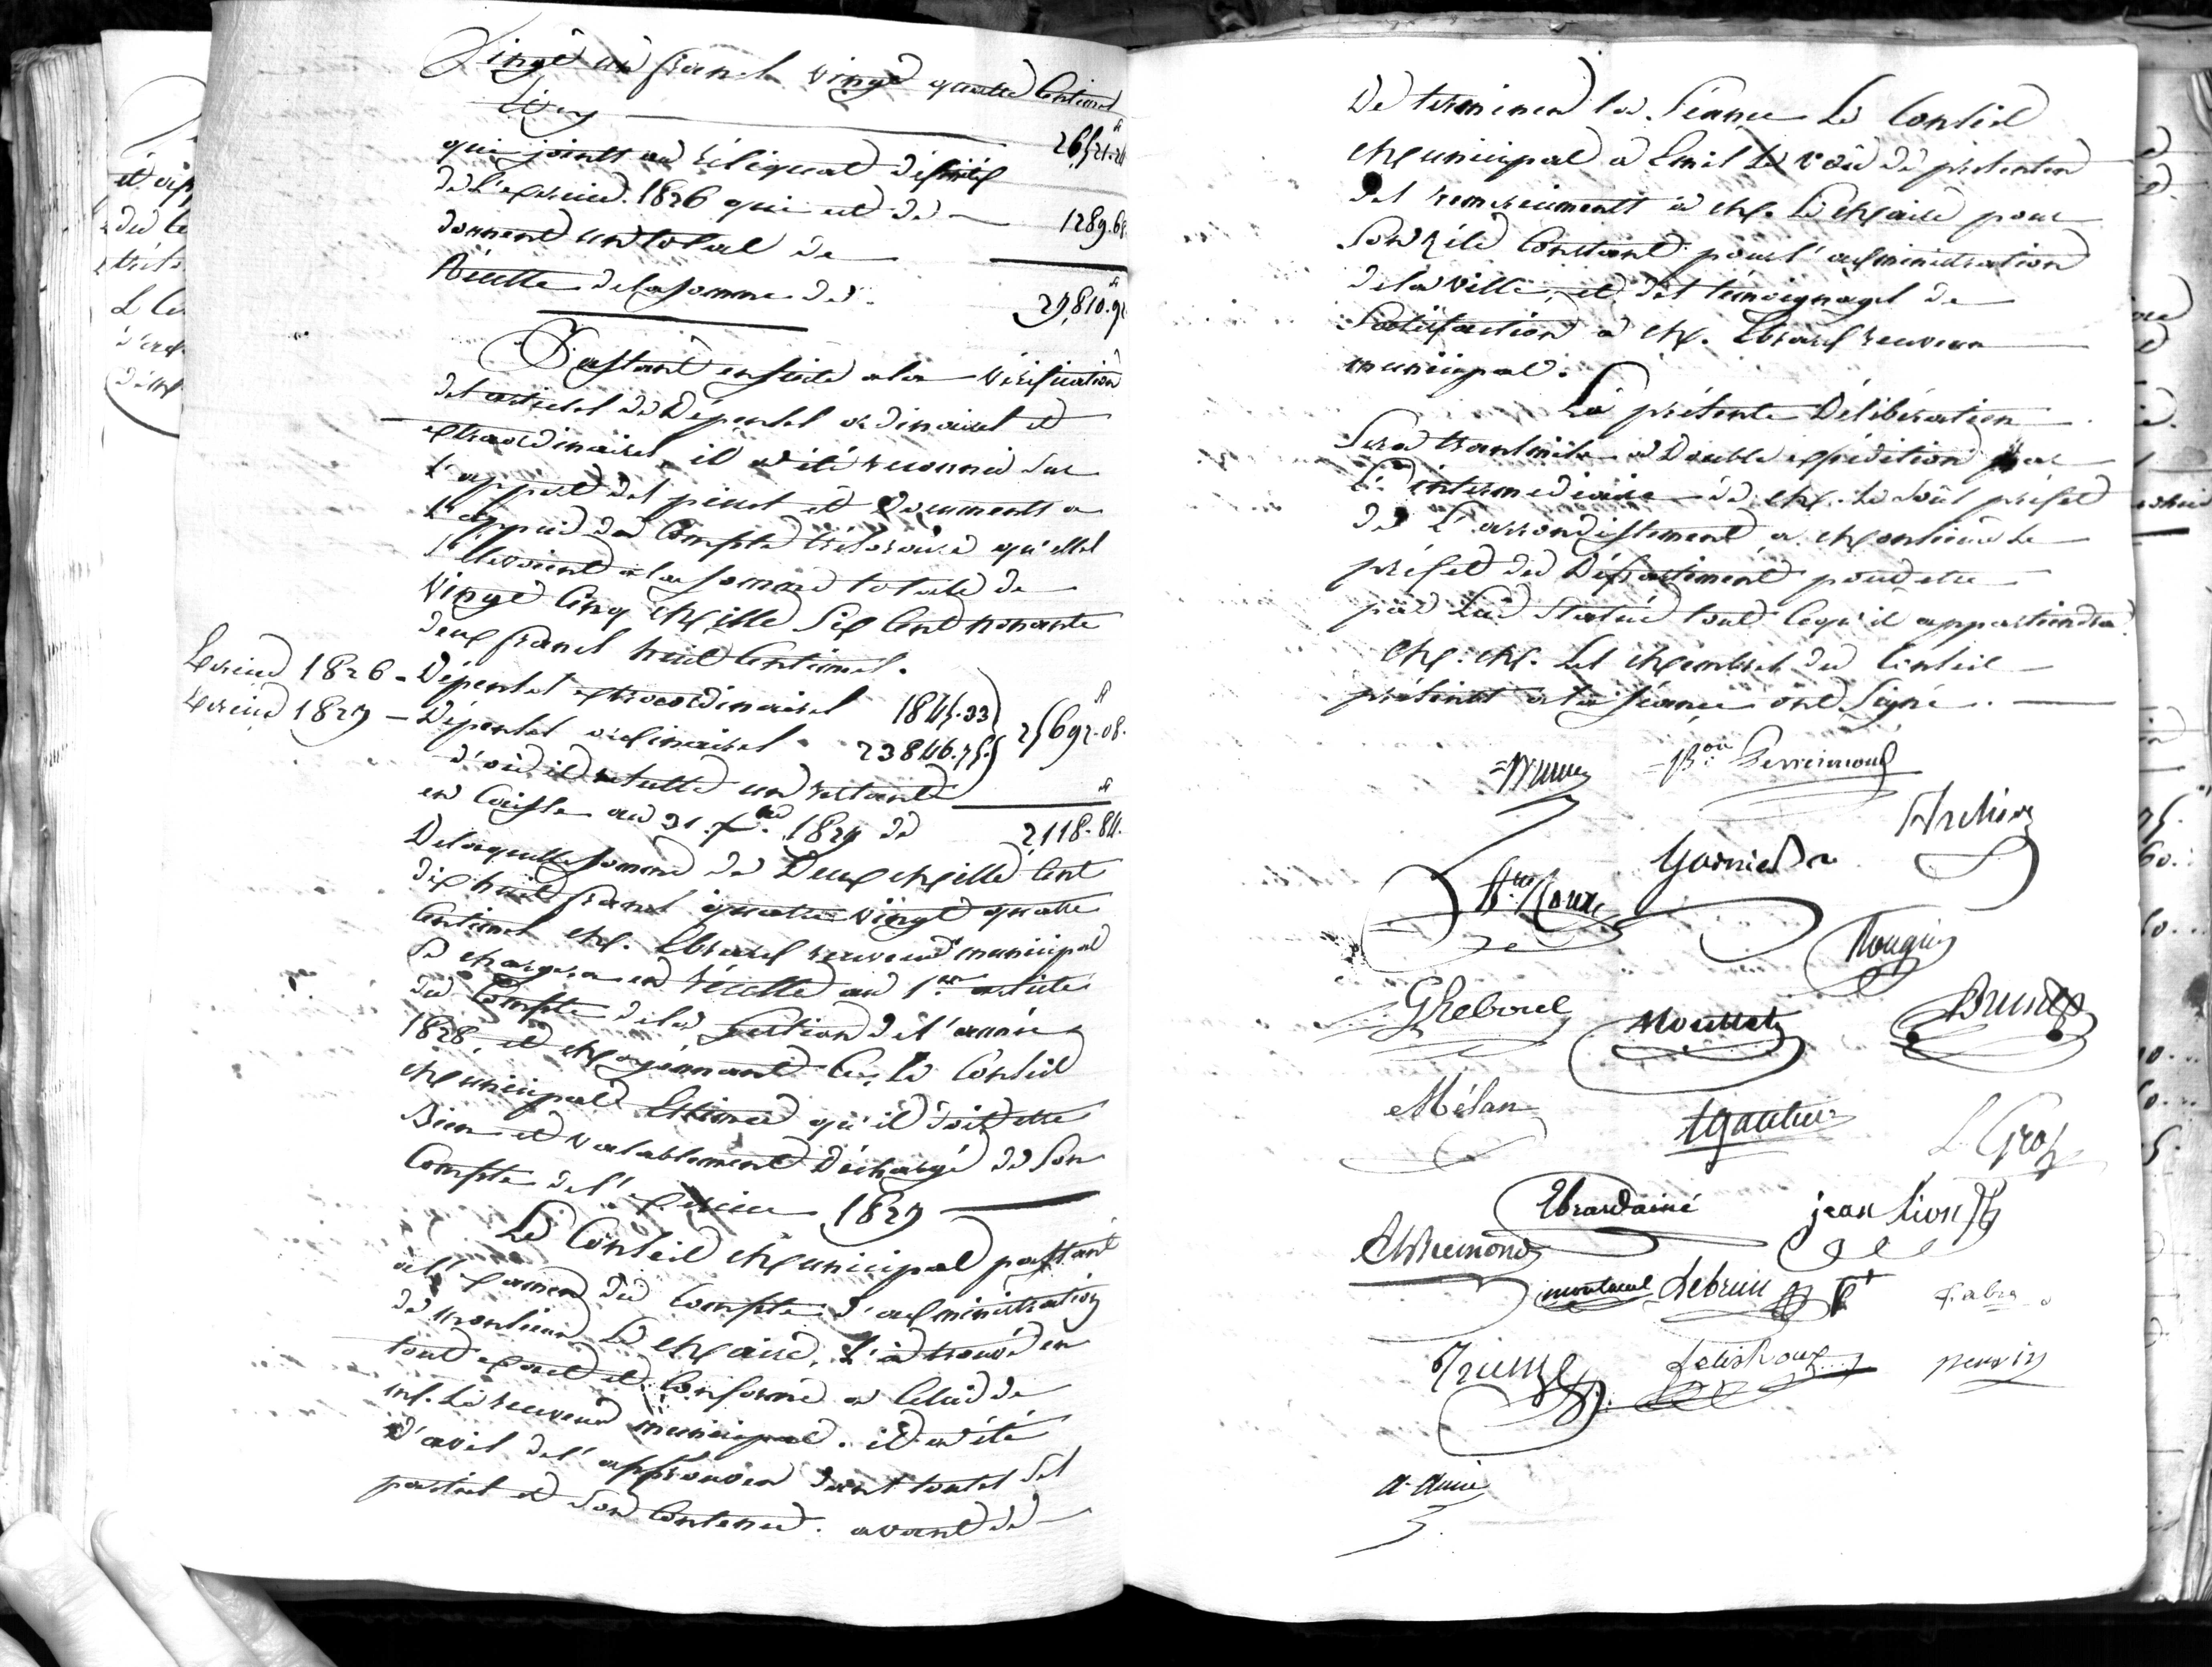 Vingt un francs vingt quatre Centimes
Ci 26521.24
qui joints au réliquat définitif
de l'exercice 1826 qui est de — 1289.68
donnent un total de
Récette de la somme de 27,810.92
Passant ensuite a la vérification
des articles de Dépenses ordinaires et
extraordinaires, il a été reconnu sur
l'apport des pieces et documents a
l'appui du Compte trésoraire qu'elles
s'élevoient a la somme totale de
Vingt Cinq Mille Six Cent nonante
deux francs huit Centimes.
Exercice 1826 - Dépenses extraordinaires 1845.33
Exercice 1827 - Dépenses ordinaires 23846.75 25692.08.
d'où il resulte un restant
en Caisse au 31 Xbre 1827 de 2118.84.
De laquelle somme de Deux Mille Cent
dix huit francs quatre vingt quatre
Centimes M. Ebrard receveur municipal
se chargera en récette au 1er article
du Compte de la gestion de l'année
1828, et Moyennant Ce, le Conseil
Municipal Estime qu'il doit etre
Bien et valablement déchargé de son
Compte de l'Exercice 1827
Le Conseil Municipal passant
à l'Examen du Compte d'administration
de monsieur Le Maire, l'a trouvé en
tout exact et Conforme a Celui de
M. le receveur municipal. il a été
d'avis de l'approuver dans toutes ses
parties et son Contenu. avant de
De terminer la Séance Le Conseil
Municipal a Emis Le voeu de présenter
des remerciments a M. Le Maire pour
son zéle Constant pour l'administration
de la ville, et des témoignages de
Satisfaction a M. Ebrard receveur
municipal.
La présente Délibération
sera transmise a Double expédition par
L'intermediaire de M. Le Sous préfet
de L'arrondissement a Monsieur Le
préfet du Département pour etre
par Lui Statué tout Ce qu'il appartiendra.
M. M. Les Membres du Conseil
présents a la séance ont Signé.
Roux
Garnier
Rougier
Mélan
A gautier
L Gros
Ebrard ainé
jean lion
montaud Lebrun
fabre